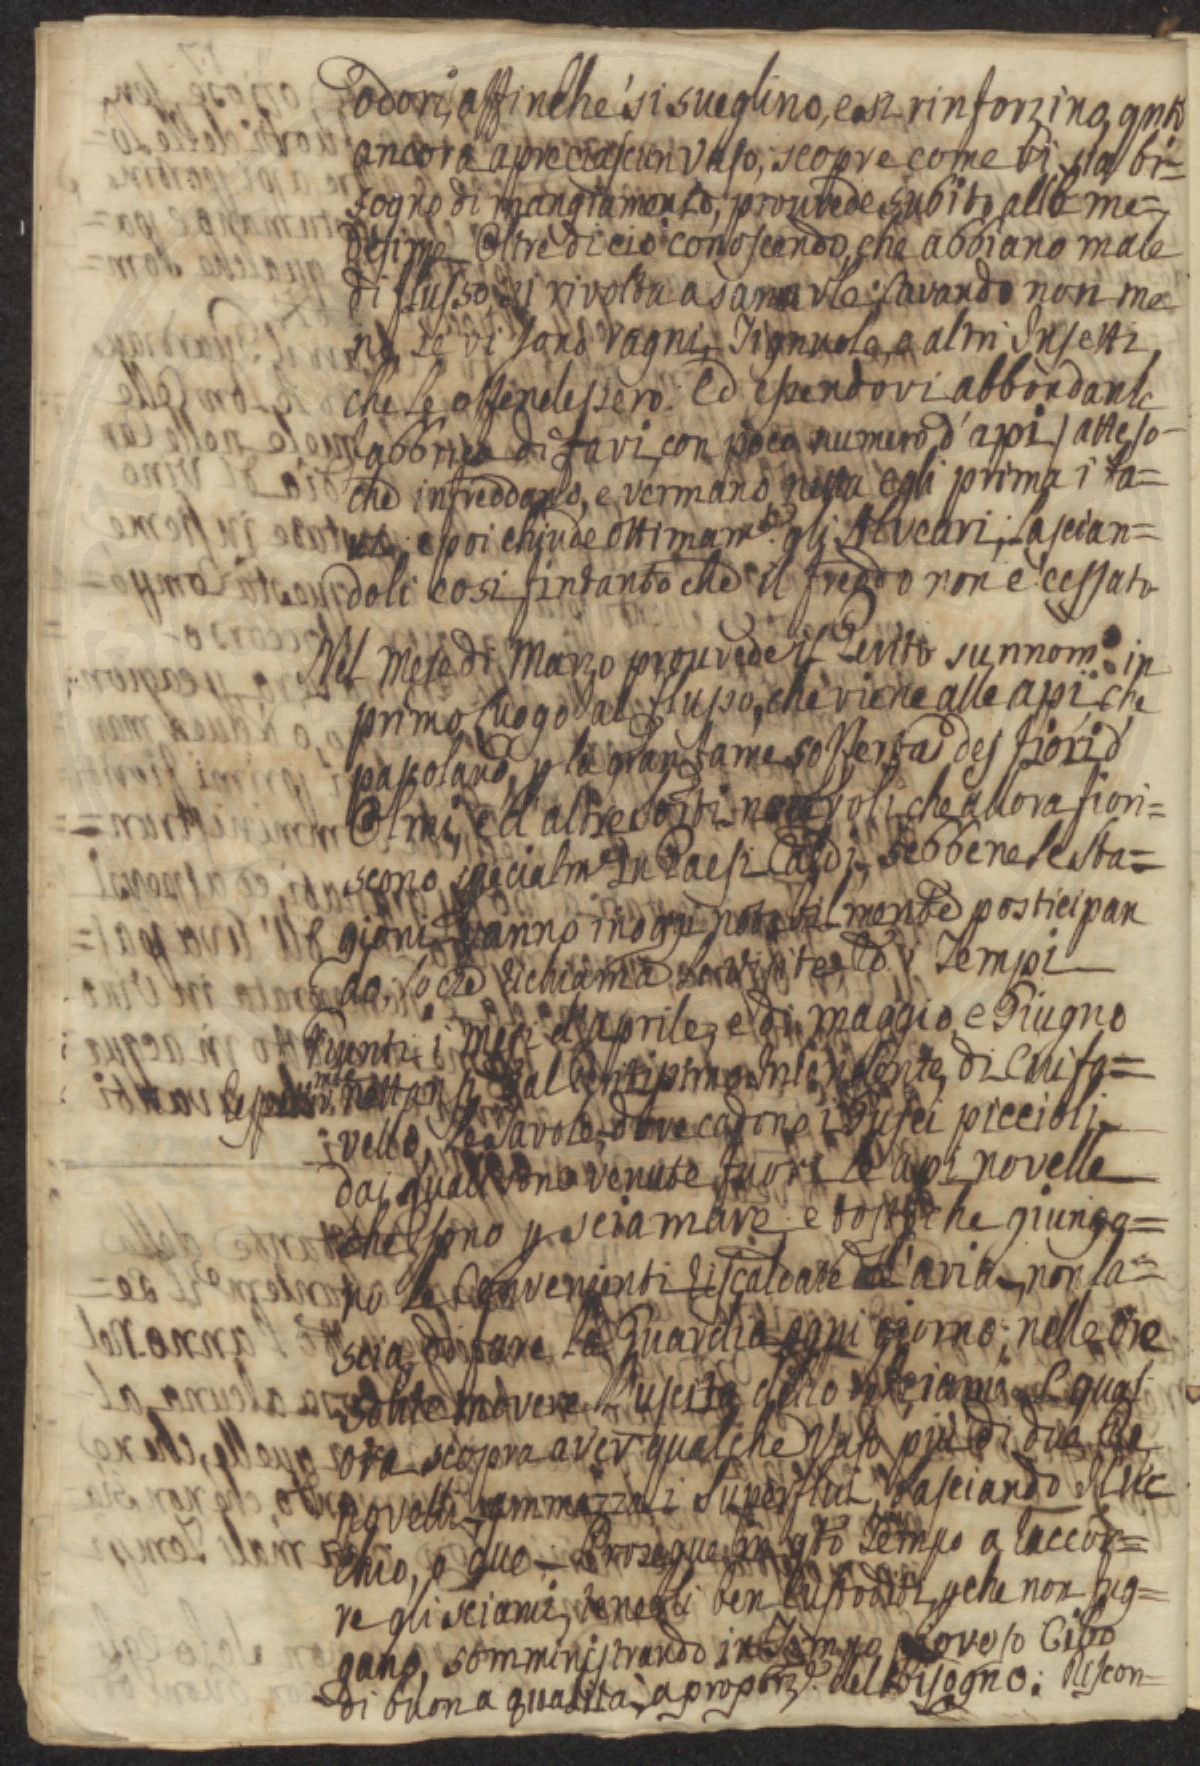 odori, affinche si sveglino, e si rinforzino, qnto
ancora apre ciascun Vaso, scopre come vi sia bi=
sogno di mangiamento, provvede subito alle me=
desime. Oltre di ciò conoscendo, che abbiano male
di flusso, si rivolta a sanarle: cavando non me
no, se vi sono ragni, Tignuole, e altri Insetti,
che le offendessero. Ed essendovi abbondante
fabbrica di favi, con poco numero d'api, atteso-
che infreddano, e vermano netta egli prima i fa=
vi, e poi chiude ottimamte. gli Alveari, lascian=
doli così fintanto che il freddo non è cessato
Nel Mese di Marzo provvede il Perito sunnom: in
primo luogo al flusso, che viene alle api, che
pascolano, p la gran fame sofferta dei fiori d'
Olmi, e d'altre sorti che allora fiori=
scono, specialm. In Paesi Caldi, sebbene le sta=
gioni vanno in oggi notabilmente posticipan
do, lo che richiama i Tempi
Giunti i mesi d'aprile, e di maggio, e Giugno
nettansi dal Intendente, di cui fa=
vello, le Tavole, dove cadono i Gusci piccioli
dai quali sono venute fuori le api novelle
che sono p sciamare: e tosto che giungo=
no le convenienti riscaldate dell'aria, non la=
scia di fare la Guardia ogni giorno, nelle ore
solite l'uscita dello sciame. E qual
ora scopra aver qualche Vaso più di due Re
novelli, ammazza i superflui, lasciando il Vec
chio, e due. Prosegue in qto Tempo a raccor=
re gli sciami, tenerli ben custoditi, pche non fug=
gano, somministrando in Tempo Piovoso Cibo
di buona qualità, a proporz. del bisogno: Riscon-